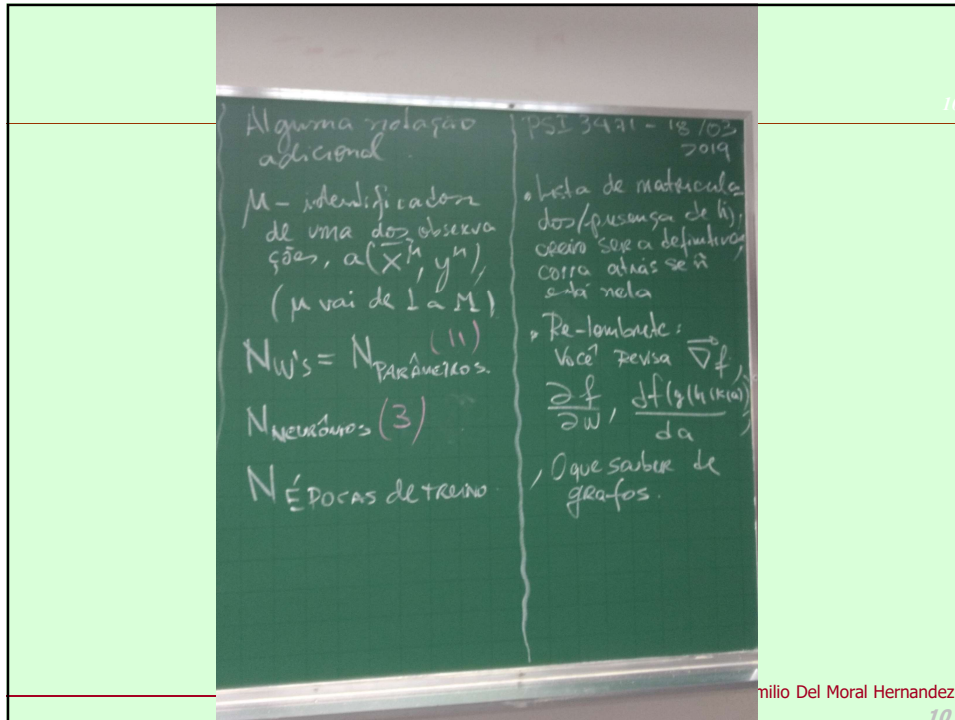 Alguma notação
adicional.
μ - identificador
de uma das observa
ções, a (x^μ, y^μ),
(μ vai de 1 a M)
Nw's = N PARÂMETROS. (11)
N NEURÔNIOS (3)
N ÉPOCAS de treino
PSI 3471 - 18/03
2019
• Lista de matricula
dos/presença de hj,
creio ser a definitiva,
corra atrás se ñ
está nela
• Re-lembrete:
Você revisa ∇f,
∂f/∂w, df(g(h(k(a))))/da
, O que souber de
grafos.
milio Del Moral Hernandez
10